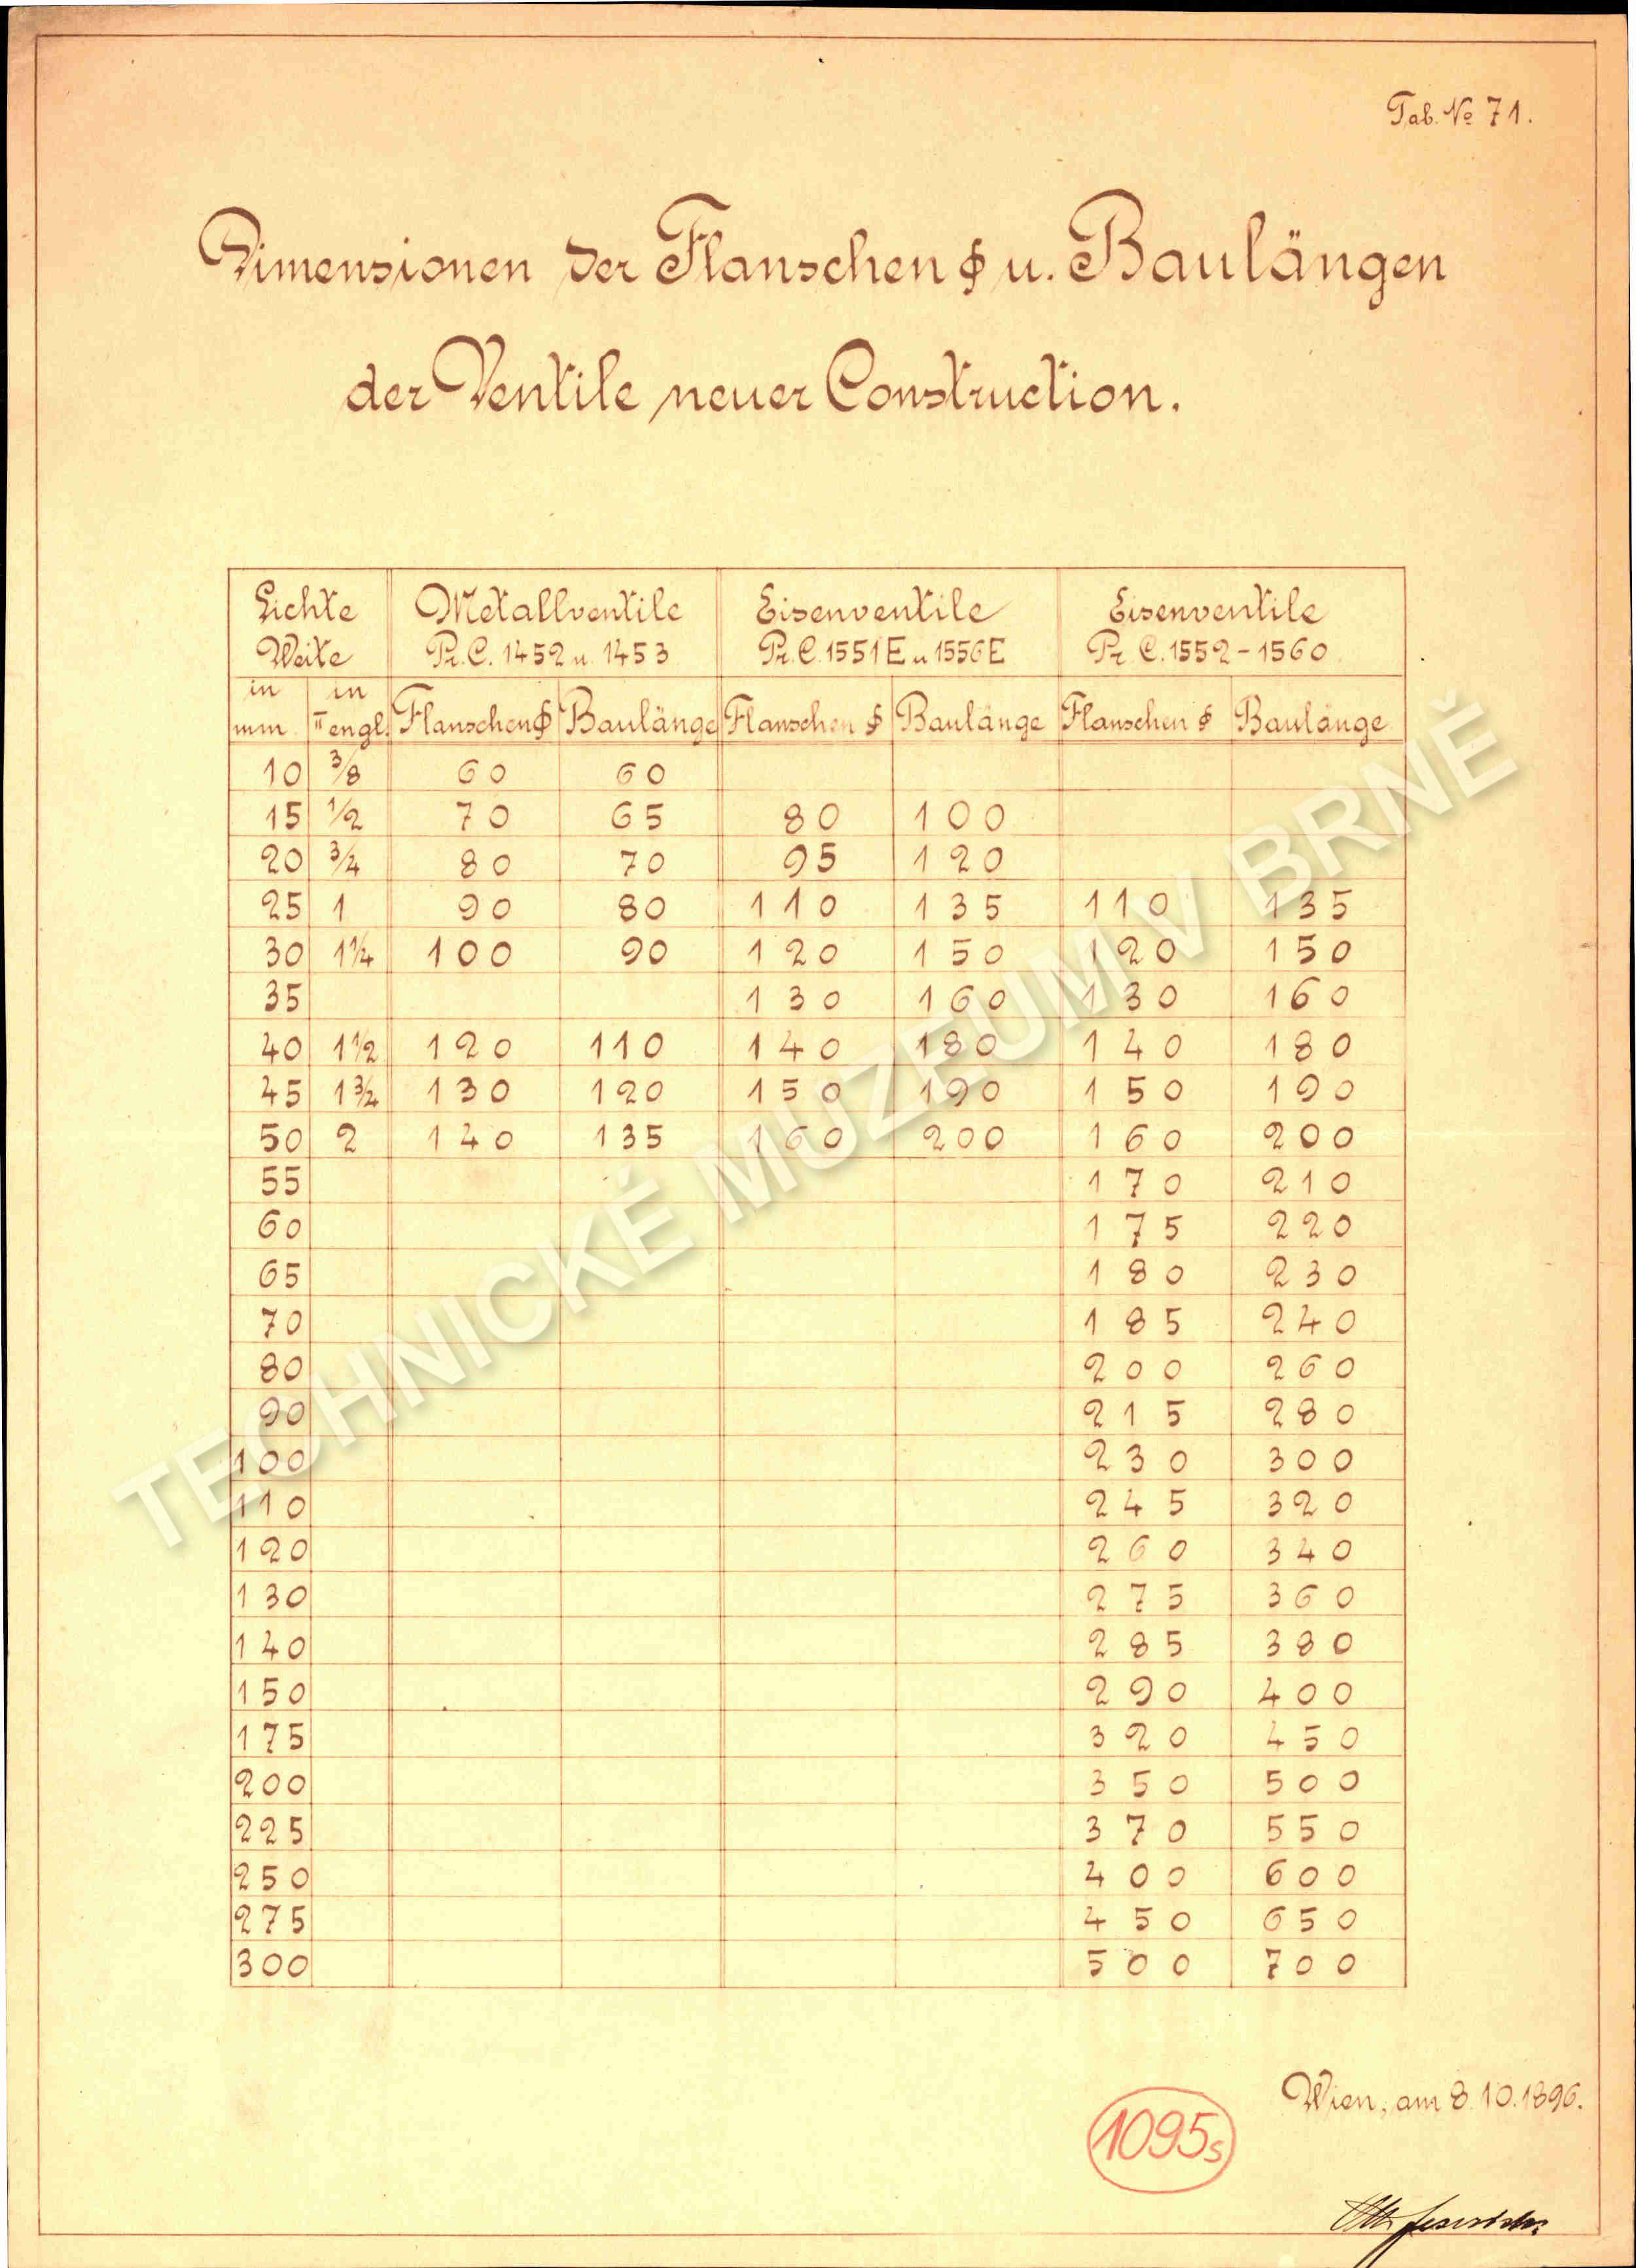 Tab. No 71.
Dimensionen der Flanschen ϕ u. Baulängen
der Ventile neuer Construction.
Lichte Weite | Metallventile Pr. C. 1452 u. 1453 | Eisenventile Pr. C. 1551 E u 1556 E | Eisenventile Pr. C. 1552 - 1560
in mm | in " engl. | Flanschen ϕ | Baulänge | Flanschen ϕ | Baulänge | Flanschen ϕ | Baulänge
10 3/8 60 60
15 1/2 70 65 80 100
20 3/4 80 70 95 120
25 1 90 80 110 135 110 135
30 1 1/4 100 90 120 150 120 150
35 130 160 130 160
40 1 1/2 120 110 140 180 140 180
45 1 3/4 130 120 150 190 150 190
50 2 140 135 160 200 160 200
55 170 210
60 175 220
65 180 230
70 185 240
80 200 260
90 215 280
100 230 300
110 245 320
120 260 340
130 275 360
140 285 380
150 290 400
175 320 450
200 350 500
225 370 550
250 400 600
275 450 650
300 500 700
TECHNICKÉ MUZEUM V BRNĚ
Wien, am 8.10.1896.
1095s